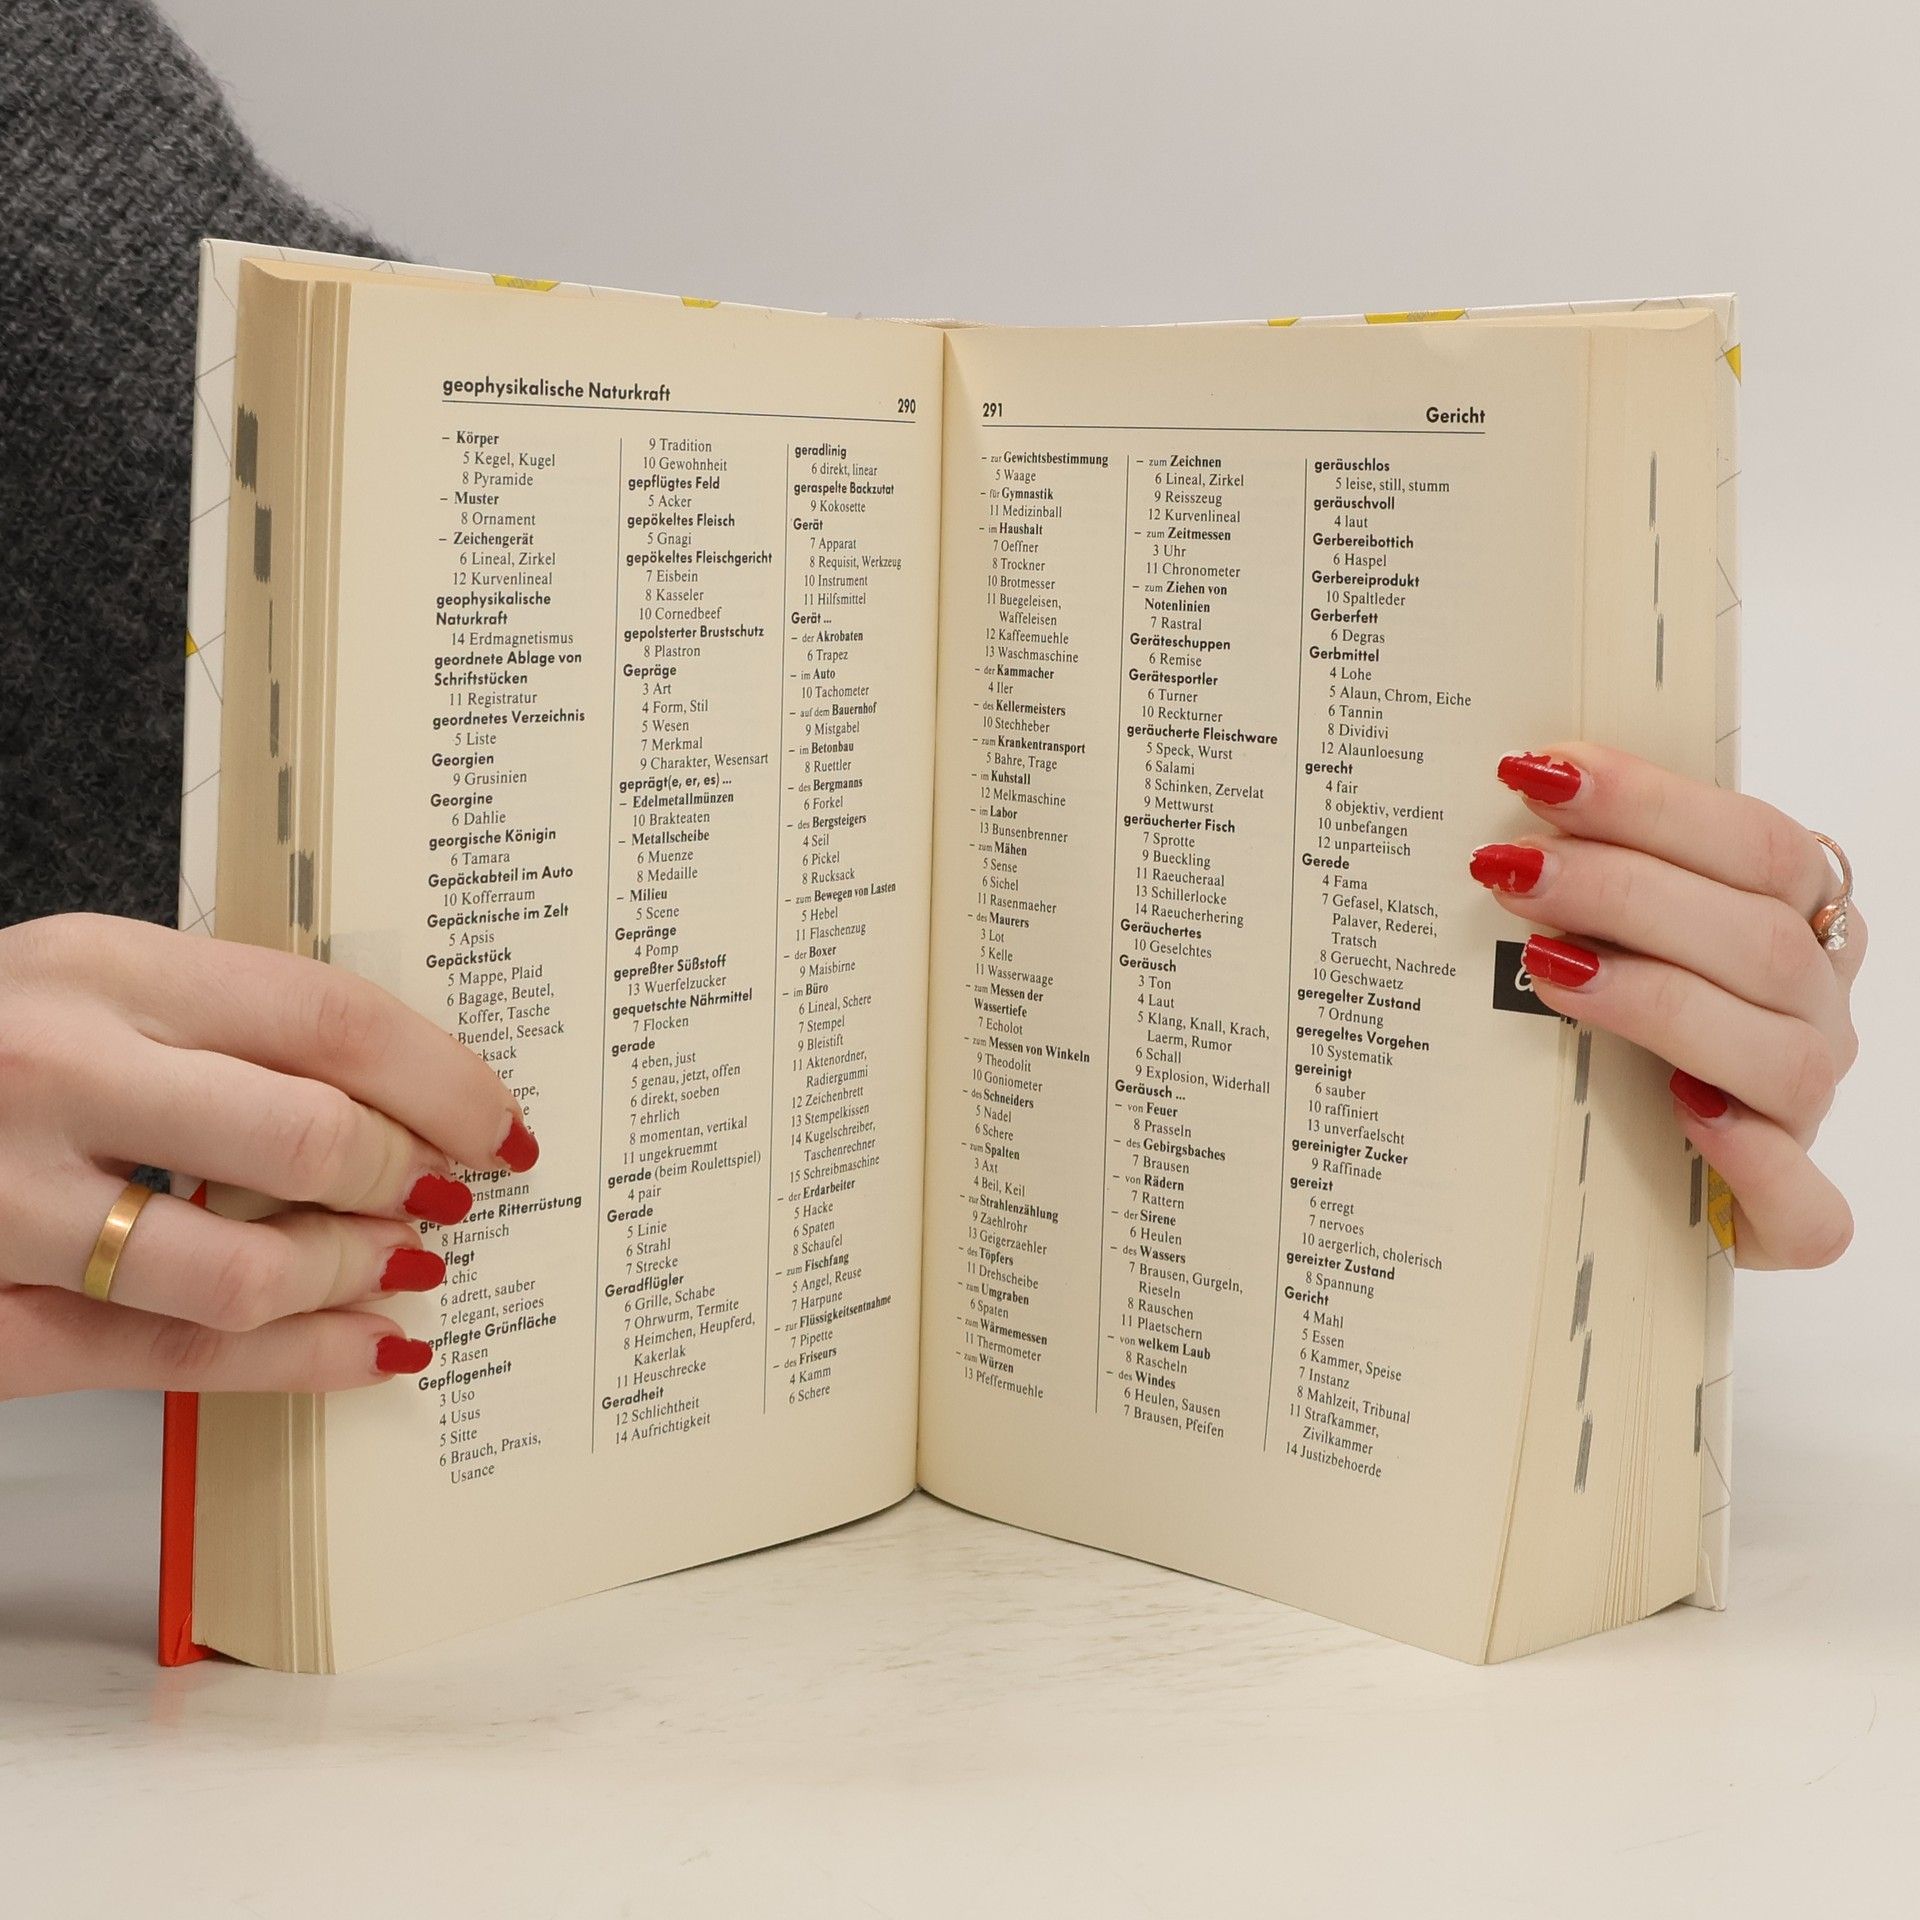 geophysikalische Naturkraft
290
– Körper
5 Kegel, Kugel
8 Pyramide
– Muster
8 Ornament
– Zeichengerät
6 Lineal, Zirkel
12 Kurvenlineal
geophysikalische
Naturkraft
14 Erdmagnetismus
geordnete Ablage von
Schriftstücken
11 Registratur
geordnetes Verzeichnis
5 Liste
Georgien
9 Grusinien
Georgine
6 Dahlie
georgische Königin
6 Tamara
Gepäckabteil im Auto
10 Kofferraum
Gepäcknische im Zelt
5 Apsis
Gepäckstück
5 Mappe, Plaid
6 Bagage, Beutel,
Koffer, Tasche
Buendel, Seesack
8 Harnisch
4 chic
6 adrett, sauber
7 elegant, serioes
Grünfläche
5 Rasen
Gepflogenheit
3 Uso
4 Usus
5 Sitte
6 Brauch, Praxis,
Usance
9 Tradition
10 Gewohnheit
gepflügtes Feld
5 Acker
gepökeltes Fleisch
5 Gnagi
gepökeltes Fleischgericht
7 Eisbein
8 Kasseler
10 Cornedbeef
gepolsterter Brustschutz
8 Plastron
Gepräge
3 Art
4 Form, Stil
5 Wesen
7 Merkmal
9 Charakter, Wesensart
geprägt(e, er, es) ...
– Edelmetallmünzen
10 Brakteaten
– Metallscheibe
6 Muenze
8 Medaille
– Milieu
5 Scene
Gepränge
4 Pomp
gepreßter Süßstoff
13 Wuerfelzucker
gequetschte Nährmittel
7 Flocken
gerade
4 eben, just
5 genau, jetzt, offen
6 direkt, soeben
7 ehrlich
8 momentan, vertikal
11 ungekruemmt
gerade (beim Roulettspiel)
4 pair
Gerade
5 Linie
6 Strahl
7 Strecke
Geradflügler
6 Grille, Schabe
7 Ohrwurm, Termite
8 Heimchen, Heupferd,
Kakerlak
11 Heuschrecke
Geradheit
12 Schlichtheit
14 Aufrichtigkeit
geradlinig
6 direkt, linear
geraspelte Backzutat
9 Kokosette
Gerät
7 Apparat
8 Requisit, Werkzeug
10 Instrument
11 Hilfsmittel
Gerät ...
– der Akrobaten
6 Trapez
– im Auto
10 Tachometer
– auf dem Bauernhof
9 Mistgabel
– im Betonbau
8 Ruettler
– des Bergmanns
6 Forkel
– des Bergsteigers
4 Seil
6 Pickel
8 Rucksack
– zum Bewegen von Lasten
5 Hebel
11 Flaschenzug
– der Boxer
9 Maisbirne
– im Büro
6 Lineal, Schere
7 Stempel
9 Bleistift
11 Aktenordner,
Radiergummi
12 Zeichenbrett
13 Stempelkissen
14 Kugelschreiber,
Taschenrechner
15 Schreibmaschine
– der Erdarbeiter
5 Hacke
6 Spaten
8 Schaufel
– zum Fischfang
5 Angel, Reuse
7 Harpune
– zur Flüssigkeitsentnahme
7 Pipette
– des Friseurs
4 Kamm
6 Schere
291
Gericht
– zur Gewichtsbestimmung
5 Waage
– für Gymnastik
11 Medizinball
– im Haushalt
7 Oeffner
8 Trockner
10 Brotmesser
11 Buegeleisen,
Waffeleisen
12 Kaffeemuehle
13 Waschmaschine
– der Kammacher
4 Iler
– des Kellermeisters
10 Stechheber
– zum Krankentransport
5 Bahre, Trage
– im Kuhstall
12 Melkmaschine
– im Labor
13 Bunsenbrenner
– zum Mähen
5 Sense
6 Sichel
11 Rasenmaeher
– des Maurers
3 Lot
5 Kelle
11 Wasserwaage
– zum Messen der
Wassertiefe
7 Echolot
– zum Messen von Winkeln
9 Theodolit
10 Goniometer
– des Schneiders
5 Nadel
6 Schere
– zum Spalten
3 Axt
4 Beil, Keil
– zur Strahlenzählung
9 Zaehlrohr
13 Geigerzaehler
– des Töpfers
11 Drehscheibe
– zum Umgraben
6 Spaten
– zum Wärmemessen
11 Thermometer
– zum Würzen
13 Pfeffermuehle
– zum Zeichnen
6 Lineal, Zirkel
9 Reisszeug
12 Kurvenlineal
– zum Zeitmessen
3 Uhr
11 Chronometer
– zum Ziehen von
Notenlinien
7 Rastral
Geräteschuppen
6 Remise
Gerätesportler
6 Turner
10 Reckturner
geräucherte Fleischware
5 Speck, Wurst
6 Salami
8 Schinken, Zervelat
9 Mettwurst
geräucherter Fisch
7 Sprotte
9 Bueckling
11 Raeucheraal
13 Schillerlocke
14 Raeucherhering
Geräuchertes
10 Geselchtes
Geräusch
3 Ton
4 Laut
5 Klang, Knall, Krach,
Laerm, Rumor
6 Schall
9 Explosion, Widerhall
Geräusch ...
– von Feuer
8 Prasseln
– des Gebirgsbaches
7 Brausen
– von Rädern
7 Rattern
– der Sirene
6 Heulen
– des Wassers
7 Brausen, Gurgeln,
Rieseln
8 Rauschen
11 Plaetschern
– von welkem Laub
8 Rascheln
– des Windes
6 Heulen, Sausen
7 Brausen, Pfeifen
geräuschlos
5 leise, still, stumm
geräuschvoll
4 laut
Gerbereibottich
6 Haspel
Gerbereiprodukt
10 Spaltleder
Gerberfett
6 Degras
Gerbmittel
4 Lohe
5 Alaun, Chrom, Eiche
6 Tannin
8 Dividivi
12 Alaunloesung
gerecht
4 fair
8 objektiv, verdient
10 unbefangen
12 unparteiisch
Gerede
4 Fama
7 Gefasel, Klatsch,
Palaver, Rederei,
Tratsch
8 Geruecht, Nachrede
10 Geschwaetz
geregelter Zustand
7 Ordnung
geregeltes Vorgehen
10 Systematik
gereinigt
6 sauber
10 raffiniert
13 unverfaelscht
gereinigter Zucker
9 Raffinade
gereizt
6 erregt
7 nervoes
10 aergerlich, cholerisch
gereizter Zustand
8 Spannung
Gericht
4 Mahl
5 Essen
6 Kammer, Speise
7 Instanz
8 Mahlzeit, Tribunal
11 Strafkammer,
Zivilkammer
14 Justizbehoerde